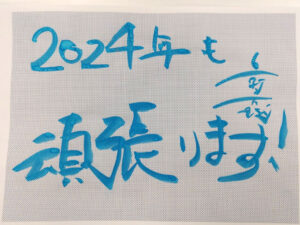 2024年も
頑張ります!